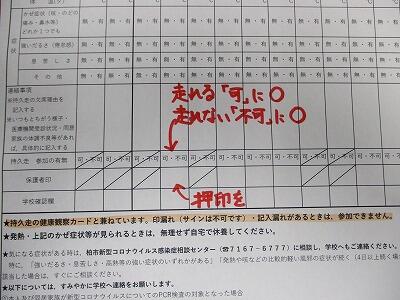 かぜ症状(咳・のどの
痛み・鼻水等)
どれか1つでも
無・有 無・有 無・有 無・有 無・有 無・有 無・有 無・有 無・有 無・有 無・有
症状
強いだるさ(倦怠感) 無・有 無・有 無・有 無・有 無・有 無・有 無・有 無・有 無・有 無・有 無・有
息苦しさ 無・有 無・有 無・有 無・有 無・有 無・有 無・有 無・有 無・有 無・有 無・有
その他 無・有 無・有 無・有 無・有 無・有 無・有 無・有 無・有 無・有 無・有 無・有
連絡事項
※持久走の欠席理由を
記入する
※いつもとちがう様子・
医療機関受診状況・同居
家族の体調不良等があれ
ば、具体的に記入する
走れる「可」に○
走れない「不可」に○
持久走 参加の有無 可・不可 可・不可 可・不可 可・不可 可・不可 可・不可 可・不可 可・不可 可・不可
保護者印
押印を
学校確認欄
★持久走の健康観察カードと兼ねています。印漏れ(サインは不可です)・記入漏れがあるときは、参加できません。
★発熱・上記のかぜ症状等が見られるときは、無理せず自宅で休養してください。
★気になる症状がある時は、柏市新型コロナウイルス感染症相談センター(☎7167-6777)に相談し、学校へもご連絡ください。
特に、「強いだるさ・息苦しさ・高熱等の強い症状のいずれかがある」「発熱や咳などの比較的軽い風邪の症状が続く(4日以上続く場
該当した場合は、すぐにご相談ください。
★以下については、すみやかに学校へ連絡をお願いします。
○本人及び同居家族が新型コロナウイルスについてのPCR検査の対象となった場合